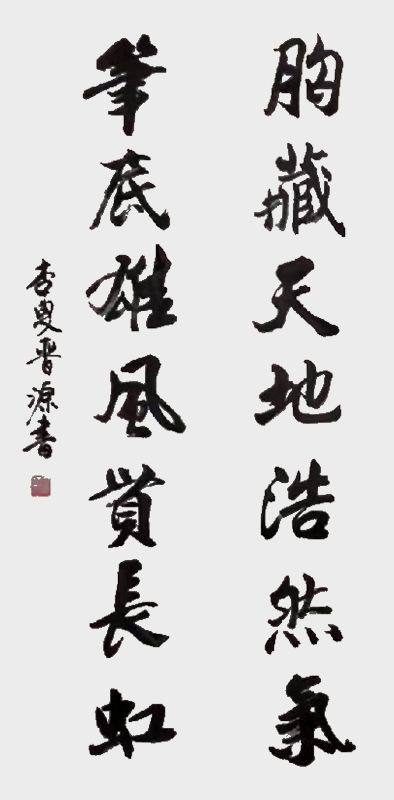 胸藏天地浩然氣
筆底雄風貫長虹
杏叟晋源書